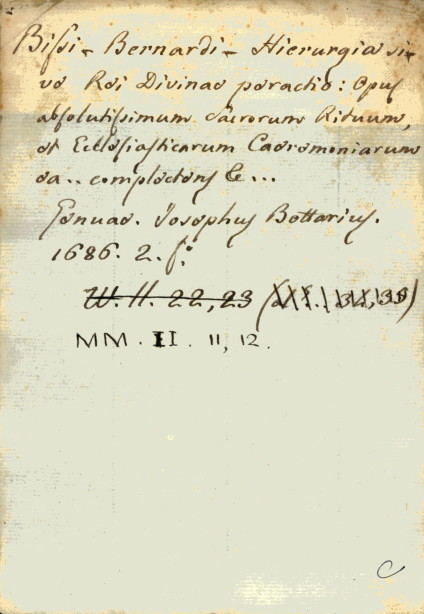 Bissi - Bernardi - Hierurgia si-
ve Rei Divinae peractio: Opus
absolutissimum Sacrorum Rituum,
et Ecclesiasticarum Caeremoniarum
ea.. complectens &c...
Genuae. Josephus Bottarius.
1686. 2. f.º
W. II. 22, 23
MM. II. 11, 12.
C